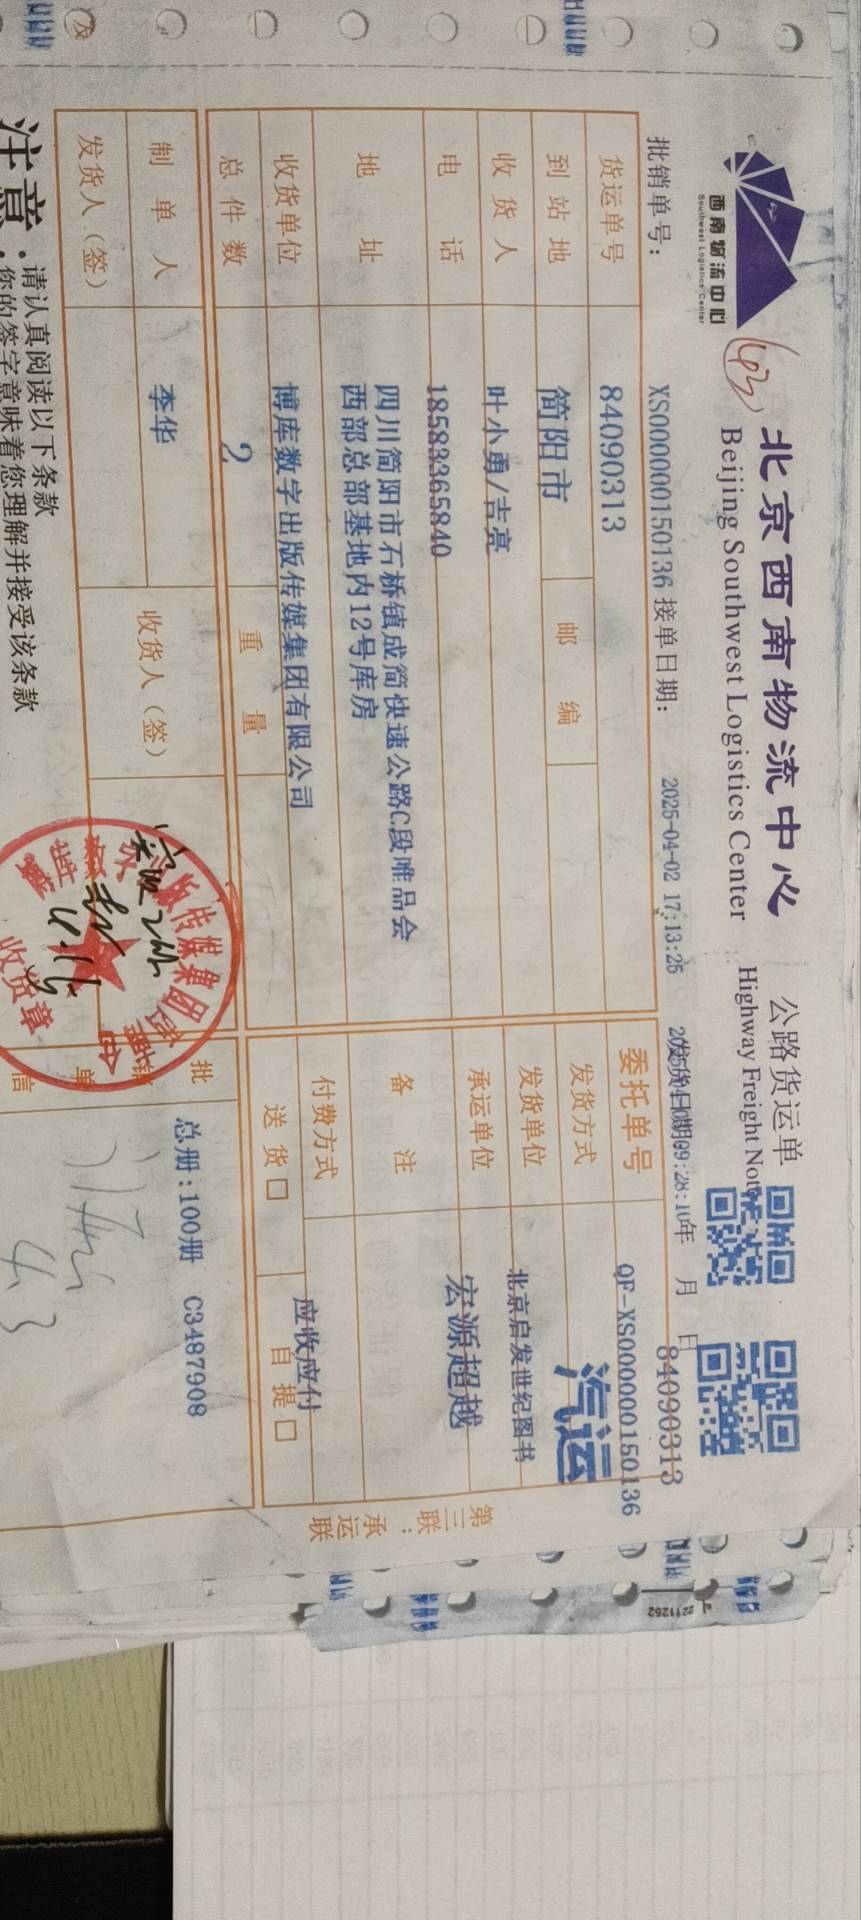 西南物流中心
Southwest Logistics Center
北京西南物流中心
Beijing Southwest Logistics Center
公路货运单
Highway Freight Note
批销单号：
XS000000150136
接单日期：
2025-04-02 17:13:25
发货日期
09:28:10
年 月 日
84090313
货运单号
84090313
委托单号
QF-XS000000150136
到站地
简阳市
邮编
发货方式
汽运
收货人
叶小勇/吉亮
发货单位
北京启发世纪图书
电话
18583365840
承运单位
宏源超越
地址
四川简阳市石桥镇成简快速公路C段唯品会
西部总部基地内12号库房
备注
收货单位
博库数字出版传媒集团有限公司
付费方式
应收应付
总件数
2
重量
送货□
自提□
制单人
李华
收货人（签）
批销单
总册:100册 C3487908
发货人（签）
信
版传媒集团
收货章
4.3
第三联：承运联
注意：
请认真阅读以下条款
你的签字意味着您理解并接受该条款